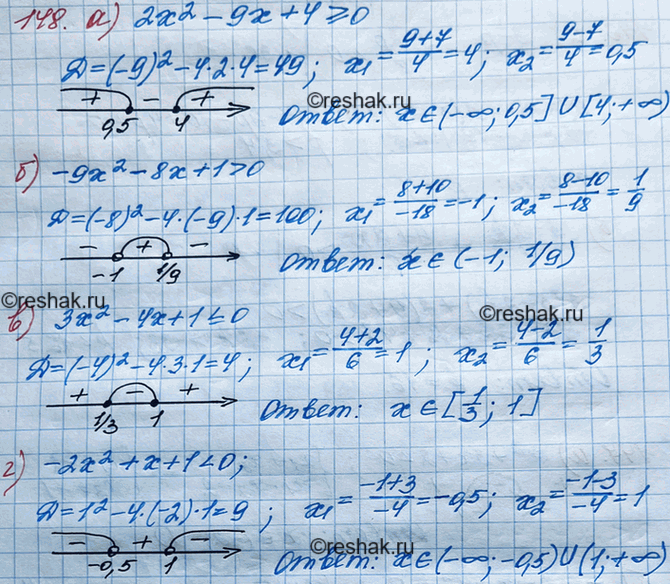 148. а) 2x² - 9x + 4 ≥ 0
Д = (-9)² - 4·2·4 = 49; x₁ = (9+7)/4 = 4; x₂ = (9-7)/4 = 0,5
+ - +
0,5 4
©reshak.ru
Ответ: x ∈ (-∞; 0,5] ∪ [4; +∞)
б) -9x² - 8x + 1 > 0
Д = (-8)² - 4·(-9)·1 = 100; x₁ = (8+10)/-18 = -1; x₂ = (8-10)/-18 = 1/9
- + -
-1 1/9
Ответ: x ∈ (-1; 1/9)
©reshak.ru
©reshak.ru
в) 3x² - 4x + 1 ≤ 0
Д = (-4)² - 4·3·1 = 4; x₁ = (4+2)/6 = 1; x₂ = (4-2)/6 = 1/3
+ - +
1/3 1
Ответ: x ∈ [1/3; 1]
г) -2x² + x + 1 < 0;
Д = 1² - 4·(-2)·1 = 9; x₁ = (-1+3)/-4 = -0,5; x₂ = (-1-3)/-4 = 1
- + -
-0,5 1
©reshak.ru
Ответ: x ∈ (-∞; -0,5) ∪ (1; +∞)